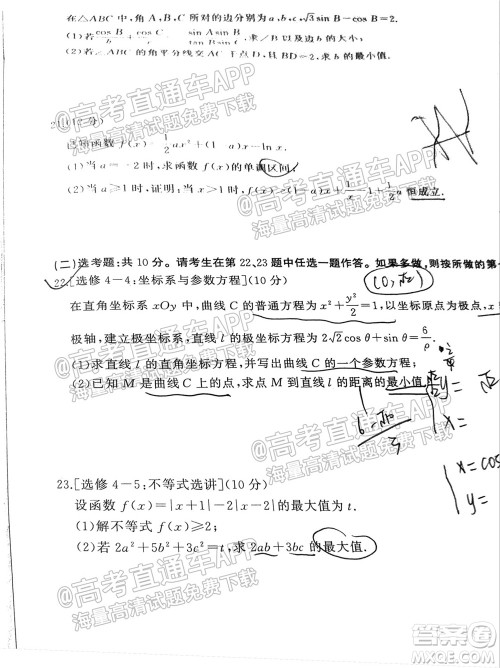 在△ABC中,角A,B,C所对的边分别为a,b,c,√3sinB-cosB=2.
(1)若cosB/b+cosC/c=sinAsinB/ ,求∠B以及边b的大小;
(2)若△ABC的角平分线交AC于点D,且BD=2,求b的最小值.
21.(12分)
已知函数f(x)=1/2ax²+(1-a)x-lnx.
(1)当a=-2时,求函数f(x)的单调区间;
(2)当a≥1时,证明:当x>1时,f(x)>(1-a)x+1/x-1+1/2a恒成立.
(二)选考题:共10分。请考生在第22、23题中任选一题作答。如果多做,则按所做的第
22.[选修4-4:坐标系与参数方程](10分)
(0,√2)
在直角坐标系xOy中,曲线C的普通方程为x²+y²/2=1,以坐标原点为极点,x
极轴,建立极坐标系,直线l的极坐标方程为2√2cosθ+sinθ=6/ρ.
(1)求直线l的直角坐标方程,写出曲线C的一个参数方程;
(2)已知M是曲线C上的点,求点M到直线l的距离的最小值.
y=
x=
x=cos
y=
23.[选修4-5:不等式选讲](10分)
设函数f(x)=|x+1|-2|x-2|的最大值为t.
(1)解不等式f(x)≥2;
(2)若2a²+5b²+3c²=t,求2ab+3bc的最大值.
@高考直通车APP
海量高清试题免费下载
@高考直通车APP
海量高清试题免费下载
@高考直通车APP
海量高清试题免费下载
@高考直通车APP
海量高清试题免费下载
答案圈
MXQE.COM